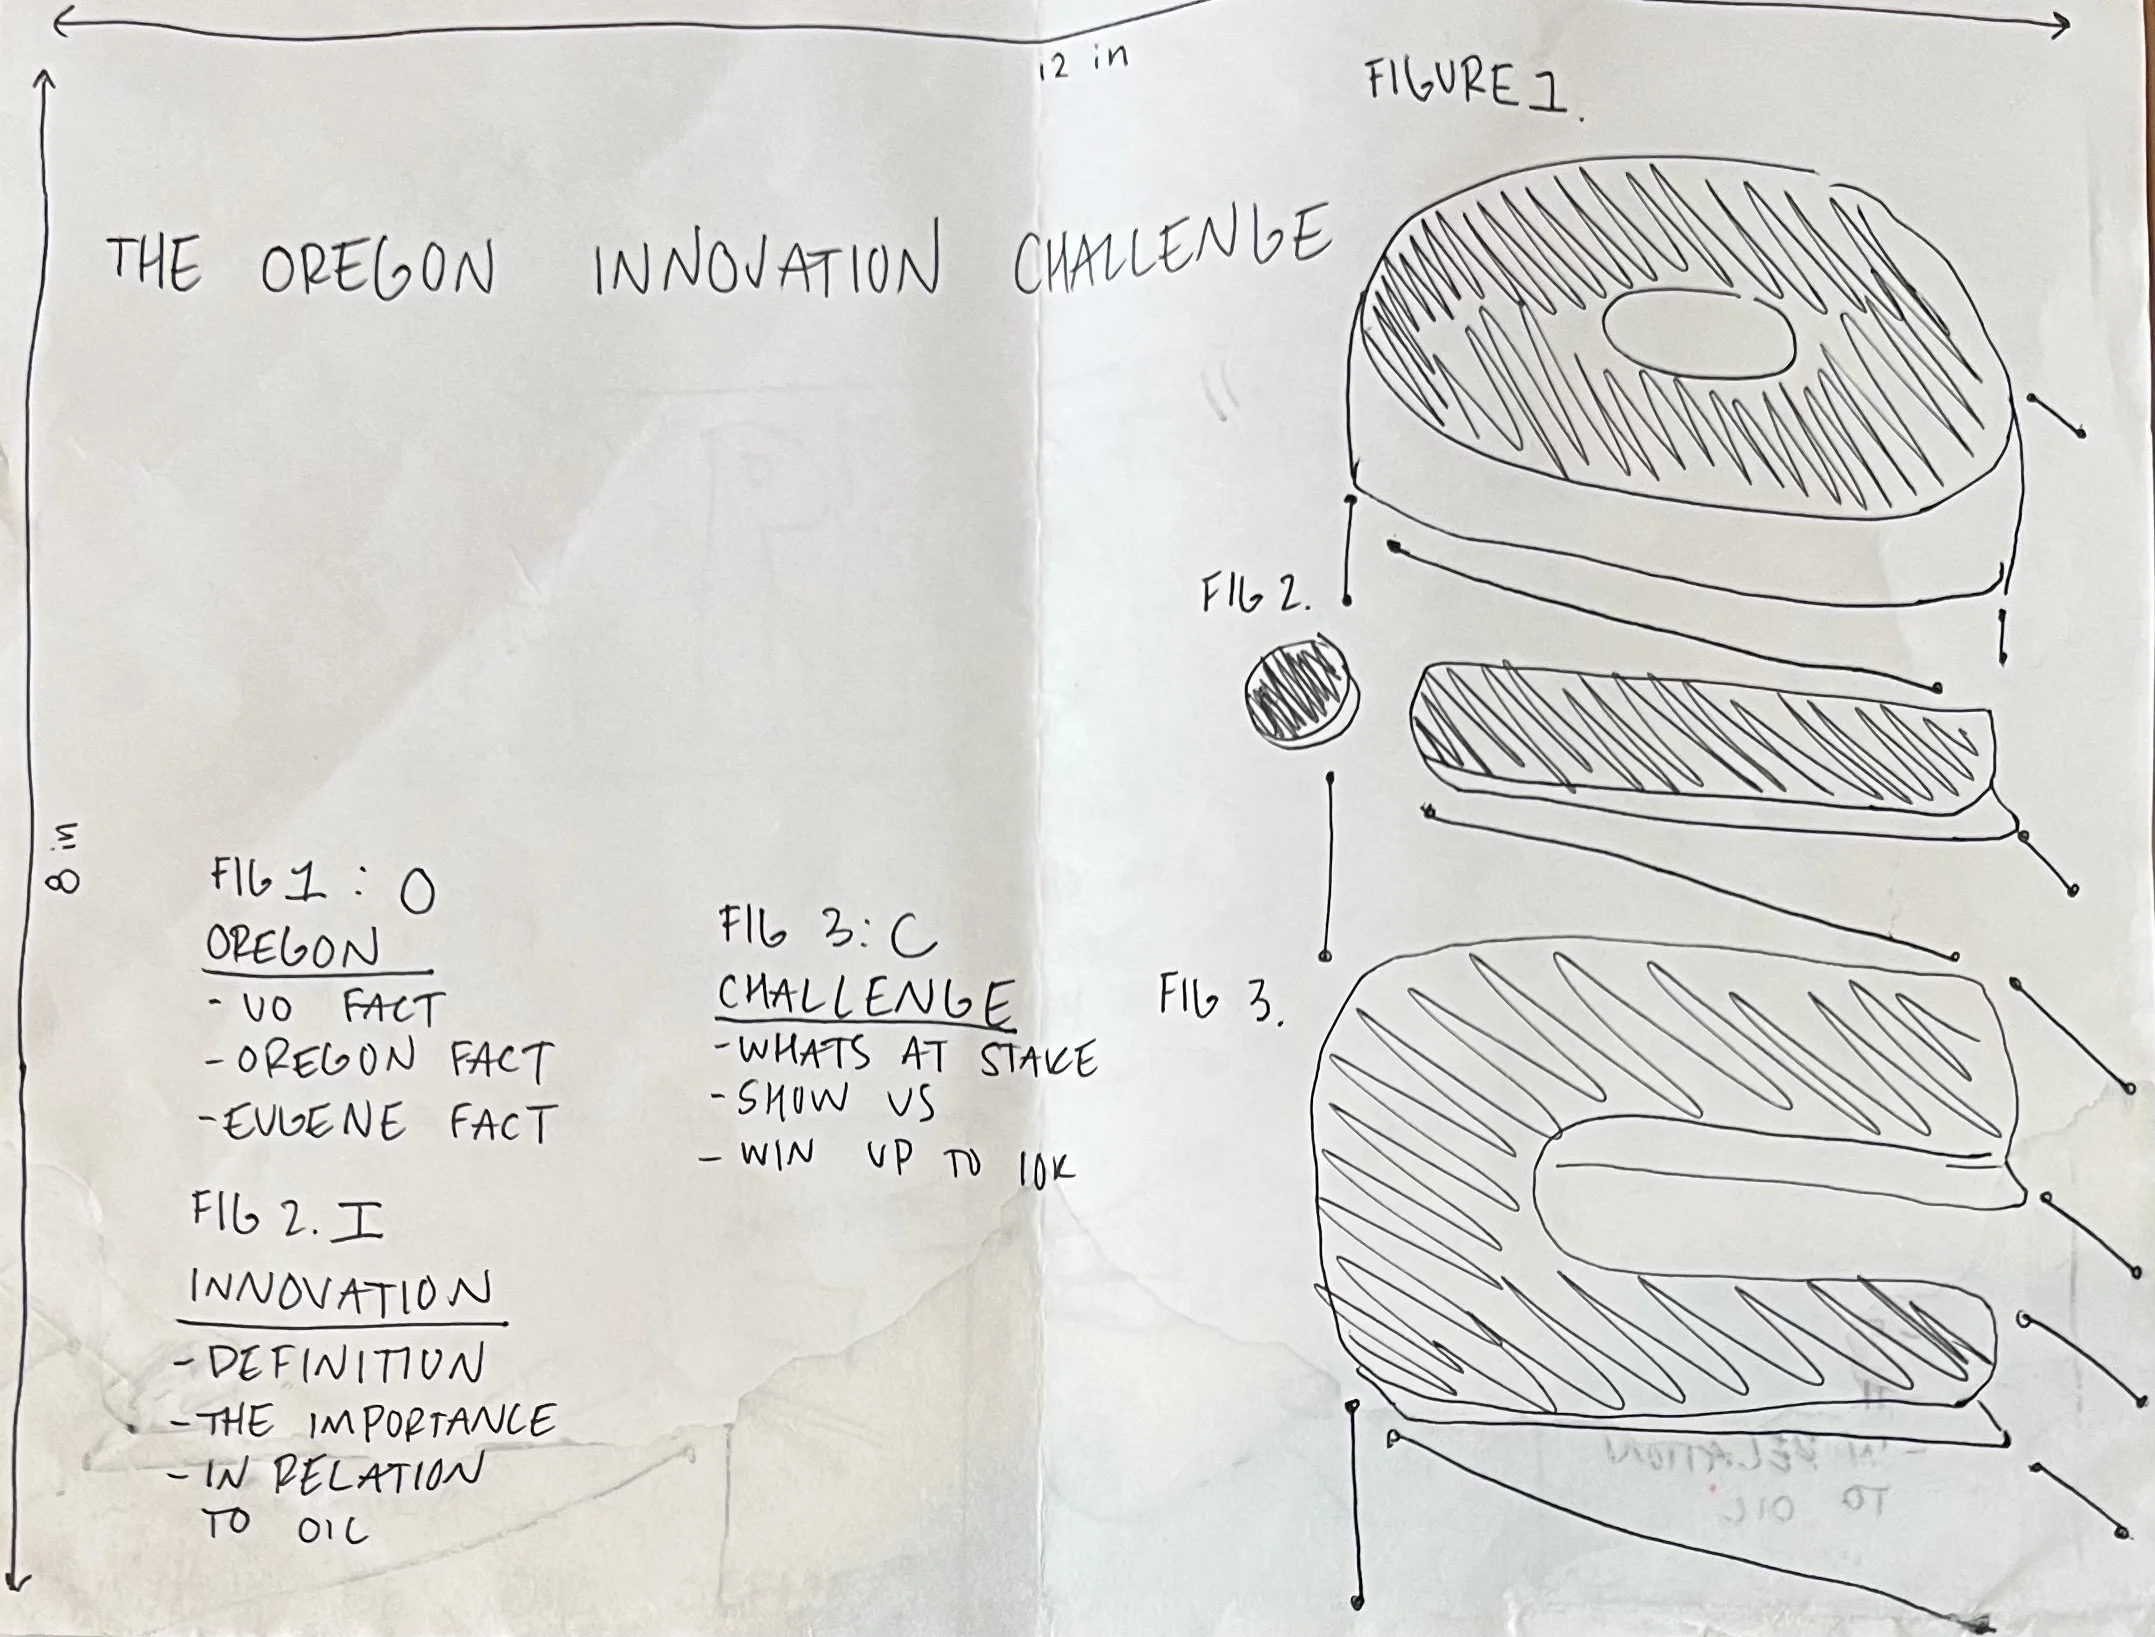 12 in
FIGURE 1.
THE OREGON INNOVATION CHALLENGE
FIG 2.
8 in
FIG 1 : O
OREGON
- UO FACT
- OREGON FACT
- EUGENE FACT
FIG 3: C
CHALLENGE
- WHATS AT STAKE
- SHOW US
- WIN UP TO 10K
FIG 3.
FIG 2. I
INNOVATION
- DEFINITION
- THE IMPORTANCE
- IN RELATION
TO OIC
- IN RELATION
TO OIC